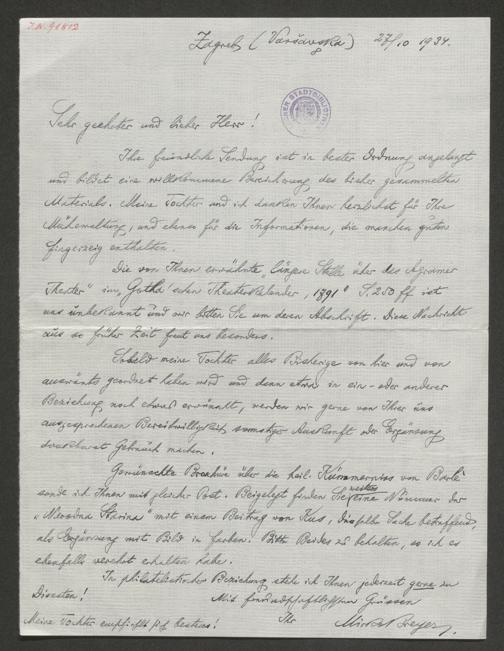 J.N. 91812
Zagreb (Varšavska) 27/10 1934.
Sehr geehrter und lieber Herr!
Ihre freundliche Sendung ist in bester Ordnung angelangt
und bildet eine willkommene Bereicherung des bisher gesammelten
Materials. Meine Tochter und ich danken Ihnen herzlichst für Ihre
Mühewaltung, und ebenso für die Informationen, die manchen guten
Fingerzeig enthalten.
Die von Ihnen erwähnte, längere Stelle über das Agramer
Theater" im "Gotha'schen Theaterkalender, 1791" S. 250 ff ist
uns unbekannt und wir bitten Sie um deren Abschrift. Diese Nachricht
aus so früher Zeit freut uns besonders.
Sobald meine Tochter alles Bisherige von hier und von
auswärts geordnet haben wird und dann etwa in ein- oder anderer
Beziehung noch etwas erwünscht, werden wir gerne von Ihrer uns
ausgesprochenen Bereitwilligkeit sonstiger Auskunft oder Ergänzung
dankbarst Gebrauch machen.
Gewünschte Broschüre über die heil. Kümmernis von Barlè
sende ich Ihnen mit gleicher Post. Beigelegt finden Sie eine Nummer der
"Narodna Starina" mit einem Beitrag von Kus, dieselbe Sache betreffend,
als Ergänzung mit Bild in Farben. Bitte Beides zu behalten, so ich es
ebenfalls verehrt erhalten habe.
In philatelistischer Beziehung stehe ich Ihnen jederzeit gerne zu
Diensten!
Mit freundschaftlichen Grüssen
Ihr
Mirko Breyer.
Meine Tochter empfiehlt sich bestens!